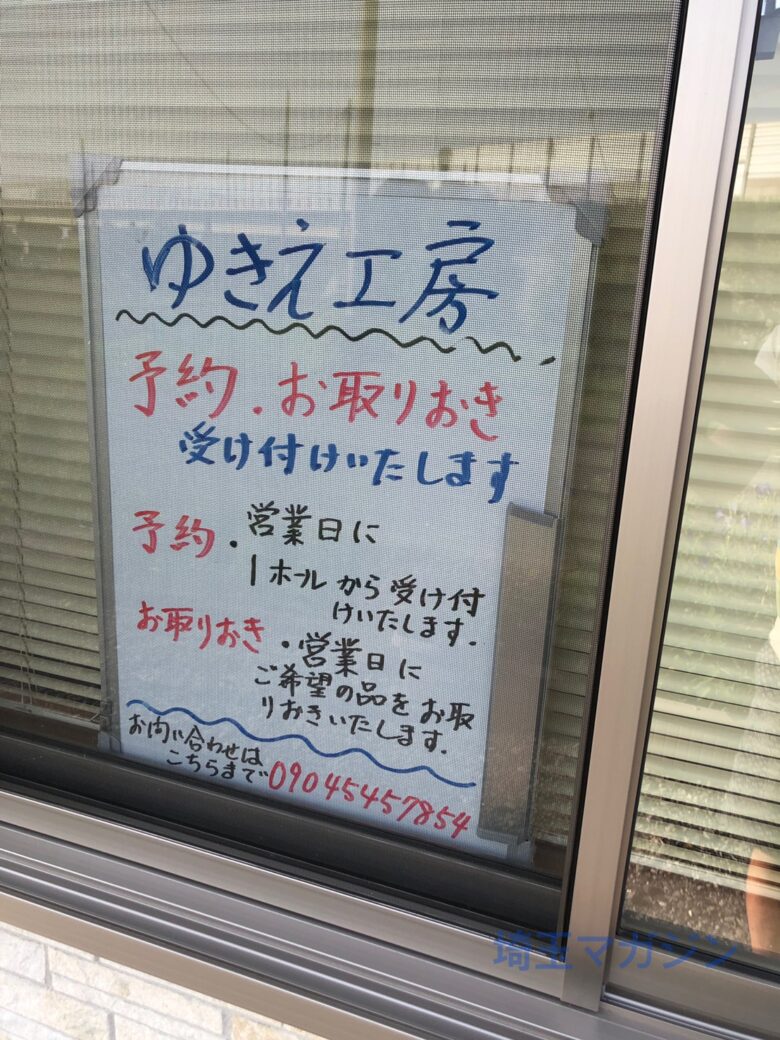 ゆきえ工房
予約．お取りおき
受け付けいたします
予約．営業日に
1ホールから受け付
けいたします．
お取りおき．営業日に
ご希望の品をお取
りおきいたします．
お問い合わせは
こちらまで09045457854
埼玉マガジン